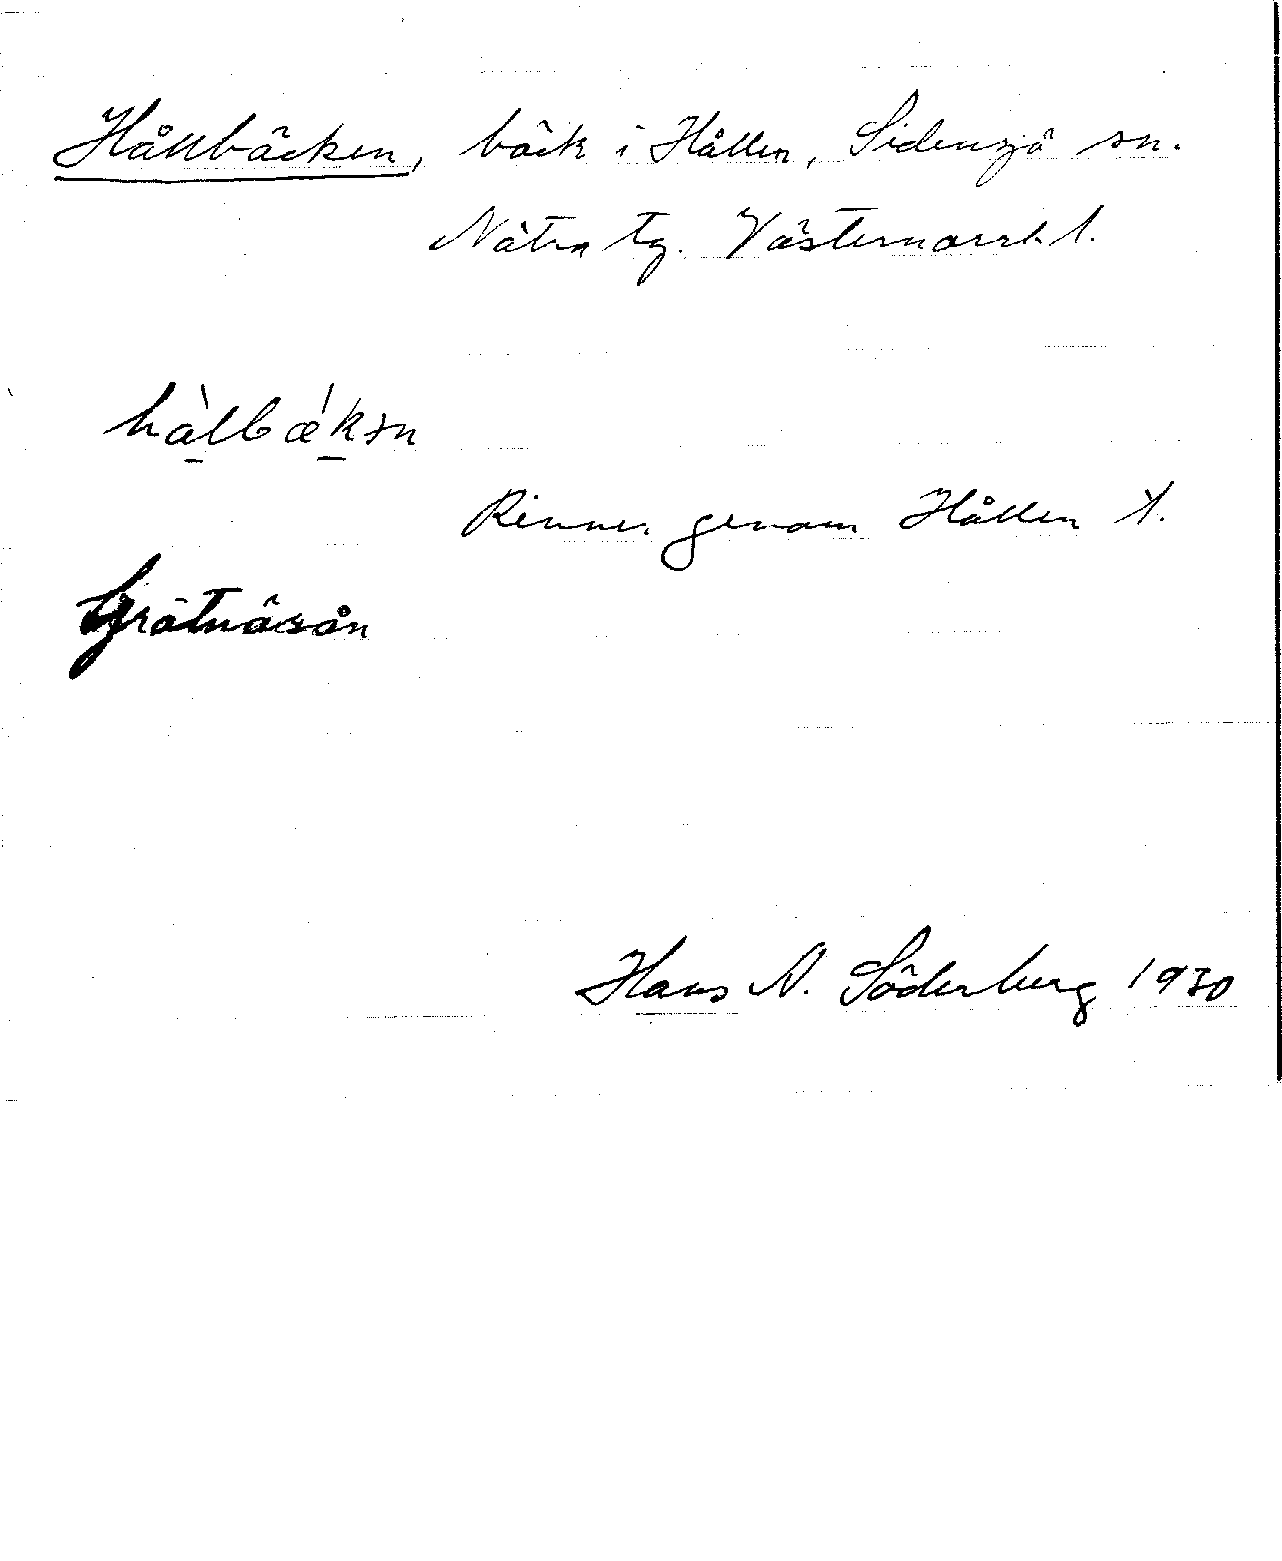 Hållbäcken, bäck i Hållen, Sidensjö sn.
Nätra tg. Västernorrl. l.
hàlbǽkən
Rinner genom Hållen t.
Grätnäsån
Hans N. Söderberg 1930